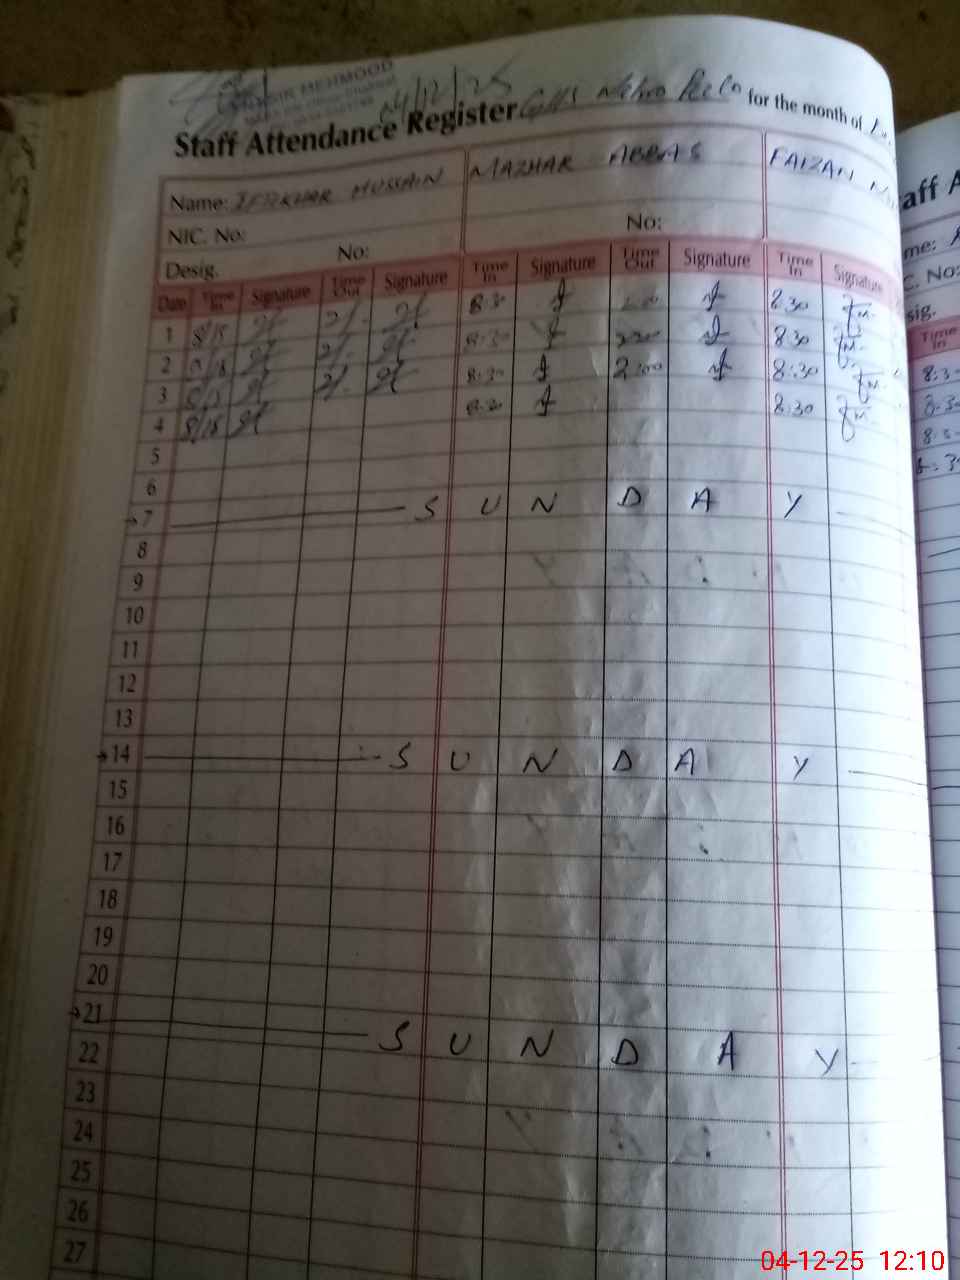 MEHMOOD
04/12/25
Staff Attendance Register GHS for the month of
Name: IFTKHAR HUSSAIN MAZHAR ABBAS FAIZAN
NIC. No:
No: No:
Desig.
Date Time In Signature Time Out Signature Time In Signature Time Out Signature Time In Signature
1 8/15 2/- 8:30 2:00 8:30
2 8/15 2/- 8:30 2:00 8:30
3 8/15 2/- 8:30 2:00 8:30
4 8/15 8:30 8:30
5
6
7 SUNDAY
8
9
10
11
12
13
14 SUNDAY
15
16
17
18
19
20
21 SUNDAY
22
23
24
25
26
27
aff A
me:
C. No:
sig.
Time In
8:3
8:3
8:3
8:3
04-12-25 12:10